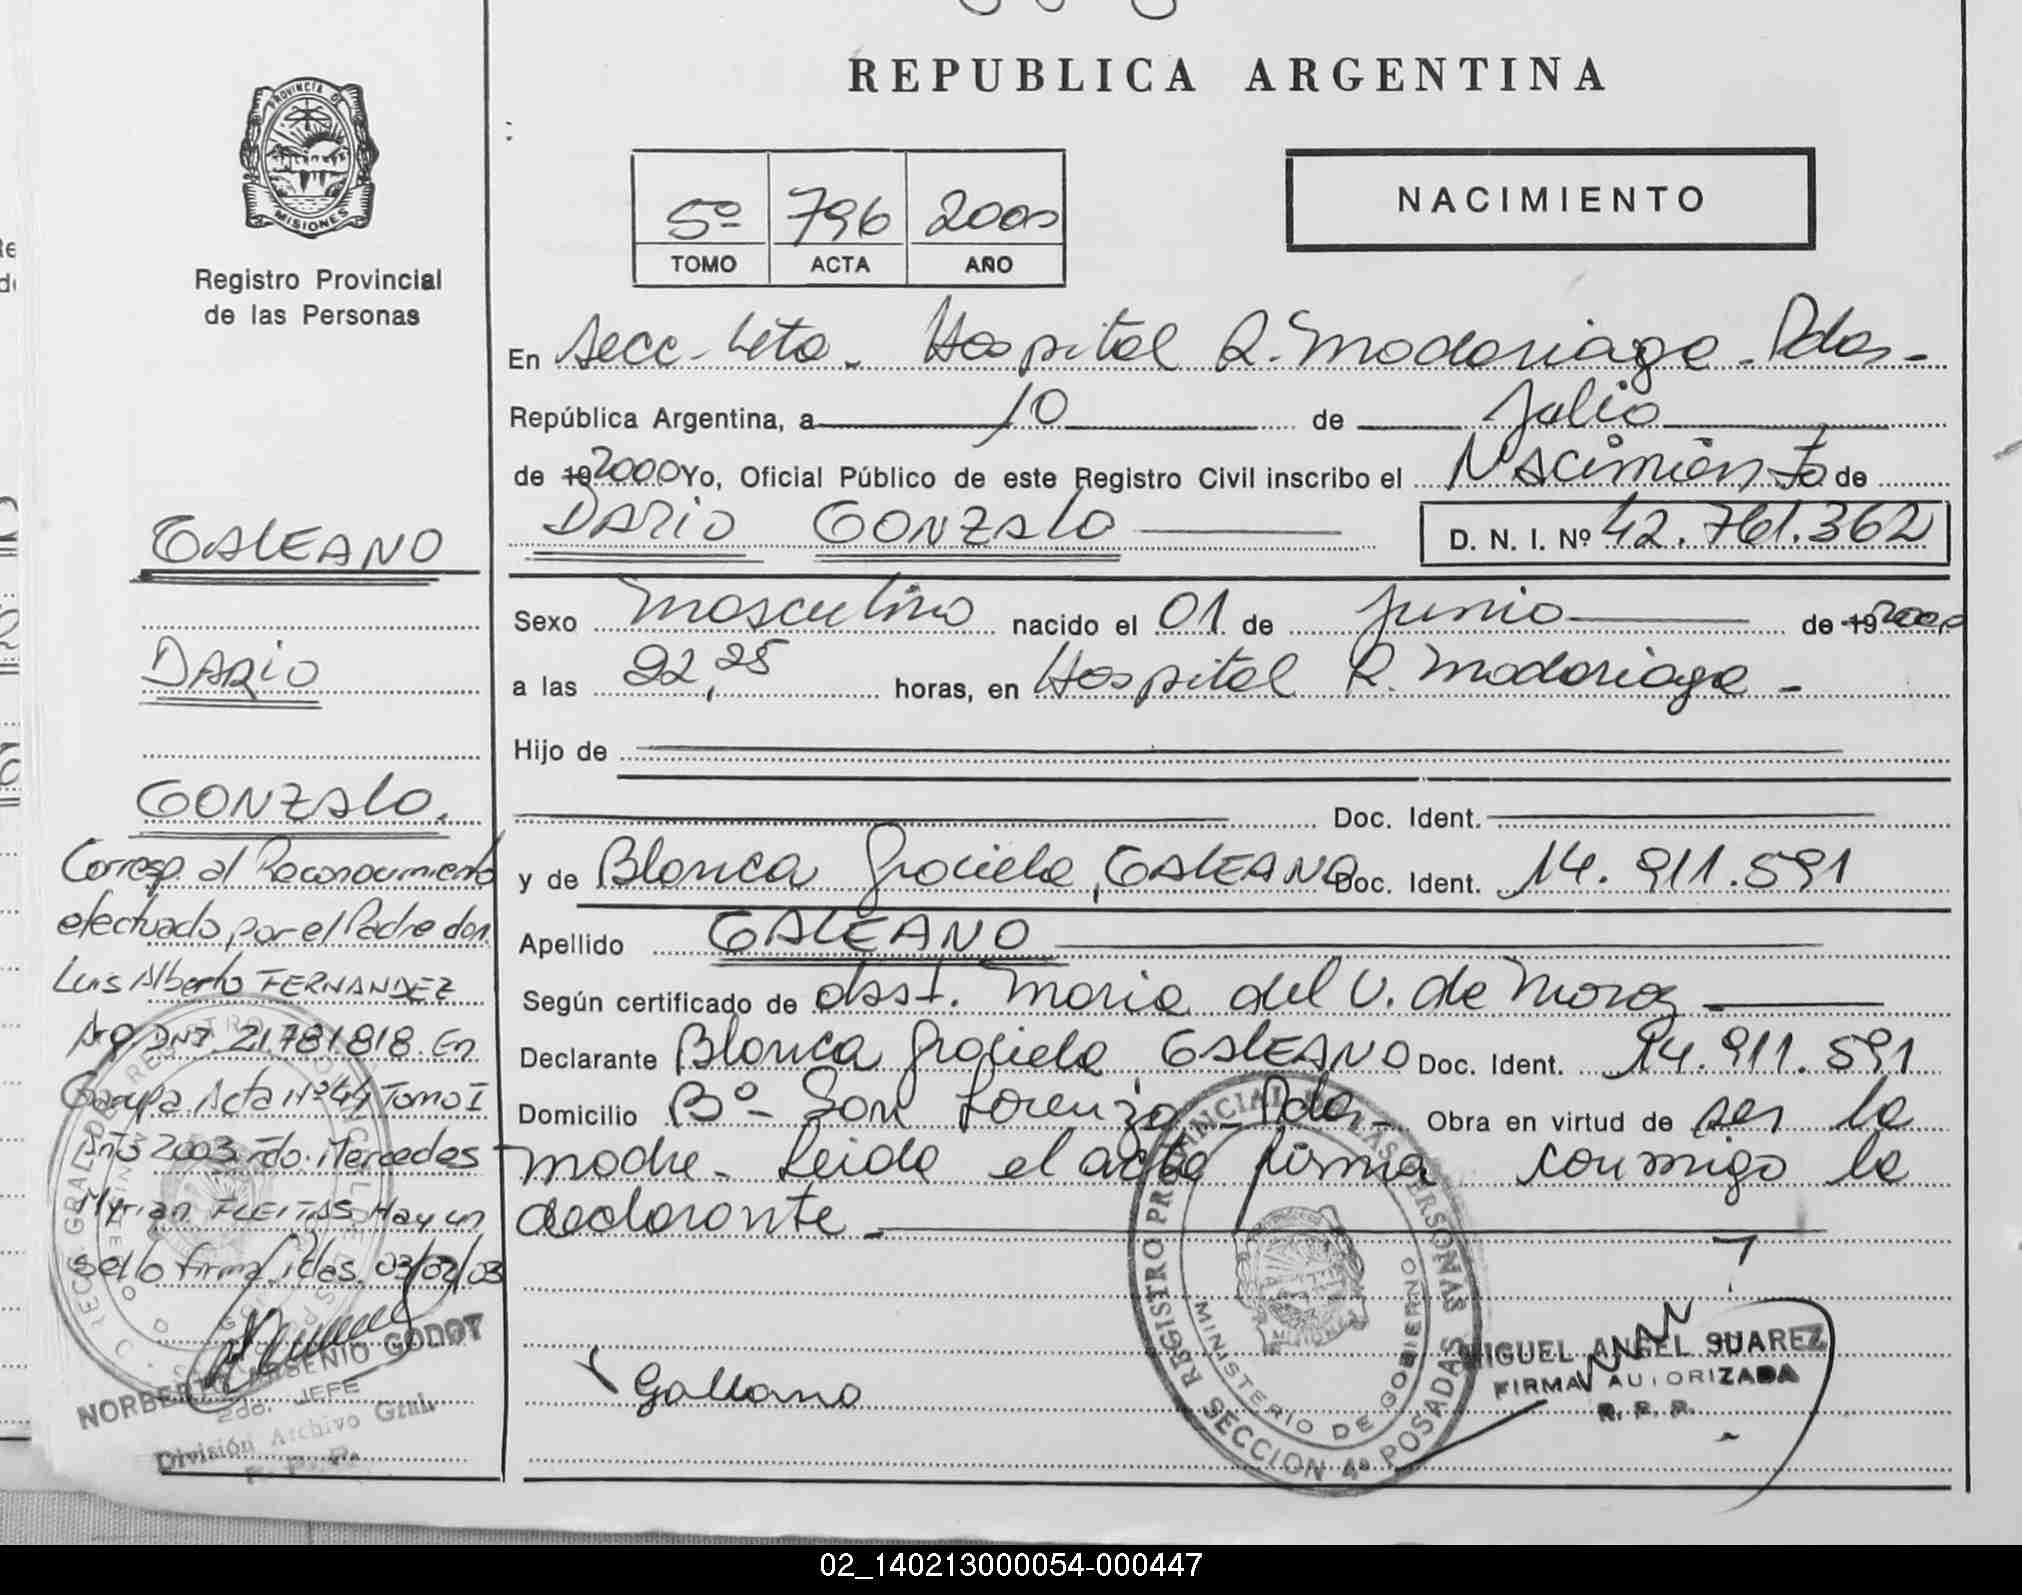 REPUBLICA ARGENTINA
PROVINCIA DE
MISIONES
Registro Provincial
de las Personas
5º 796 2000
TOMO ACTA AÑO
NACIMIENTO
En Secc. 4ta. Hospital R. Madariaga - Pdas -
República Argentina, a 10 de Julio
de 19 2000 Yo, Oficial Público de este Registro Civil inscribo el Nacimiento de
DARIO GONZALO D. N. I. Nº 42.761.362
Sexo Masculino nacido el 01 de Junio de 19 2000
a las 22,25 horas, en Hospital R. Madariaga -
Hijo de
Doc. Ident.
y de Blanca Graciela, GALEANO Doc. Ident. 14.911.591
Apellido GALEANO
Según certificado de obst. Maria del V. de
Declarante Blanca Graciela, GALEANO Doc. Ident. 14.911.591
Domicilio Bº - San Lorenzo - Pdas - Obra en virtud de ser la
madre - Leida el acta firma conmigo la
declarante -
Galeano
REGISTRO PROVINCIAL DE LAS PERSONAS
MINISTERIO DE GOBIERNO
SECCION 4ª POSADAS
MISIONES
MIGUEL ANGEL SUAREZ
FIRMA AUTORIZADA
R. P. P.
GALEANO
DARIO
GONZALO.
Corresp. al Reconocimiento
efectuado por el Padre don
Luis Alberto FERNANDEZ
Arg DNI. 21.781818 En
Garupa. Acta Nº 44 Tomo I
Año 2003 Fdo. Mercedes
Myrian FLEITAS Hay un
sello firma. Pdas. 03/02/03
NORBERTO ARSENIO GODOY
2do. JEFE
División Archivo Gral.
R. P. P.
02_140213000054-000447